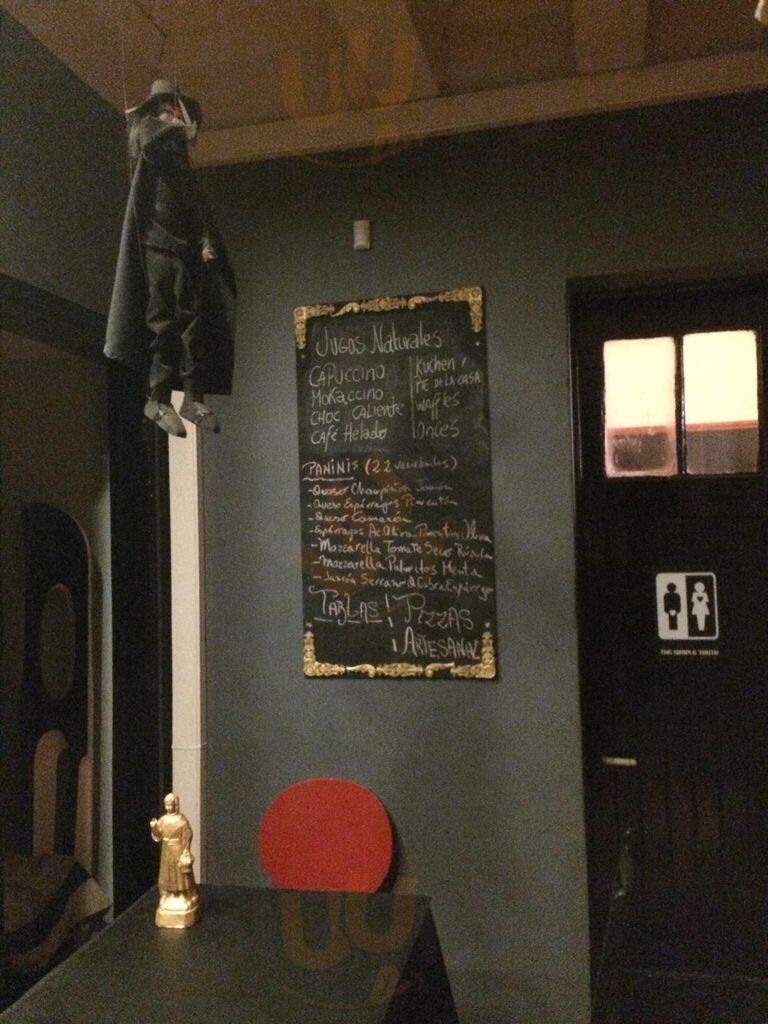 Jugos Naturales
CAPUCCINO
MOKACCINO
CHOC CALIENTE
CAFÉ Helado
Kuchen /
PIE DE LA CASA
Waffles
Onces
PANINIS (22 variedades)
- Queso Champiñón Jamón
- Queso Espárragos Pimentón
- Queso Camarón
- Espárragos Aceituna Pimentón
- Mozzarella Tomate Seco Rúcula
- Mozzarella Palmitos Menta
- Jamón Serrano Q Cabra Espárrago
TABLAS ! PIZZAS
¡ARTESANAL
THE SIMPLE TRUTH